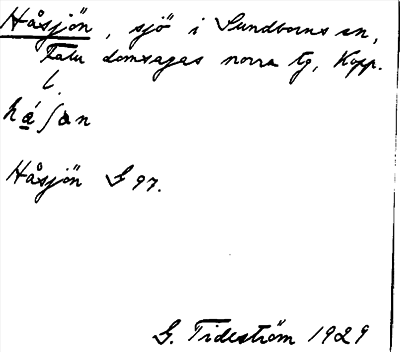 Håsjön, sjö i Sundborns sn,
Falu domsagas norra tg, Kopp.
l.
há̱ʃɑn
Håsjön G 97.
G. Tideström 1929